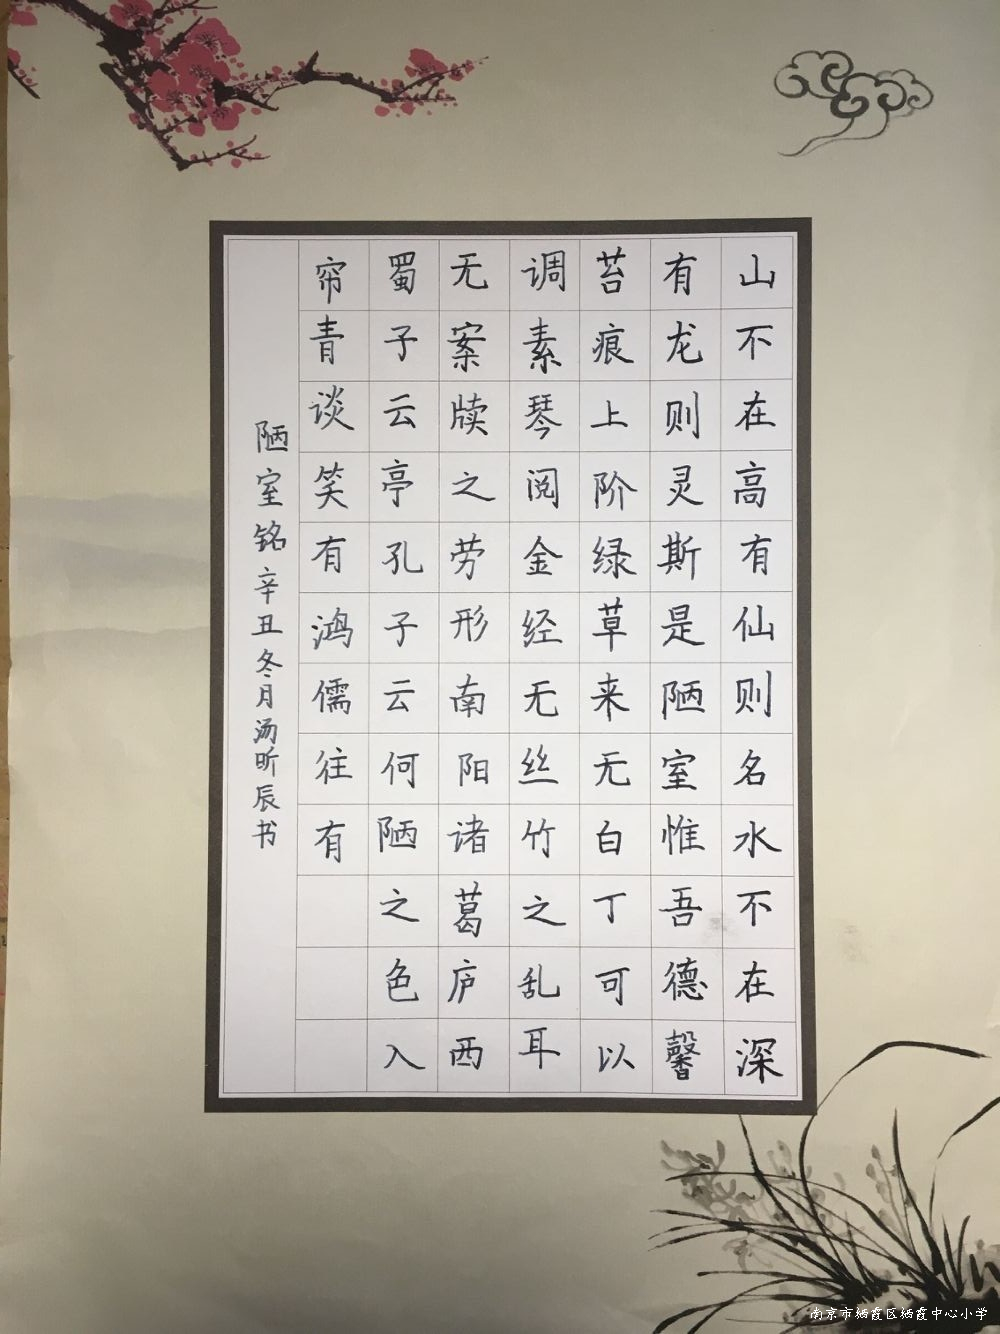 山不在高有仙则名水不在深
有龙则灵斯是陋室惟吾德馨
苔痕上阶绿草来无白丁可以
调素琴阅金经无丝竹之乱耳
无案牍之劳形南阳诸葛庐西
蜀子云亭孔子云何陋之色入
帘青谈笑有鸿儒往有
陋室铭辛丑冬月汤昕辰书
南京市栖霞区栖霞中心小学